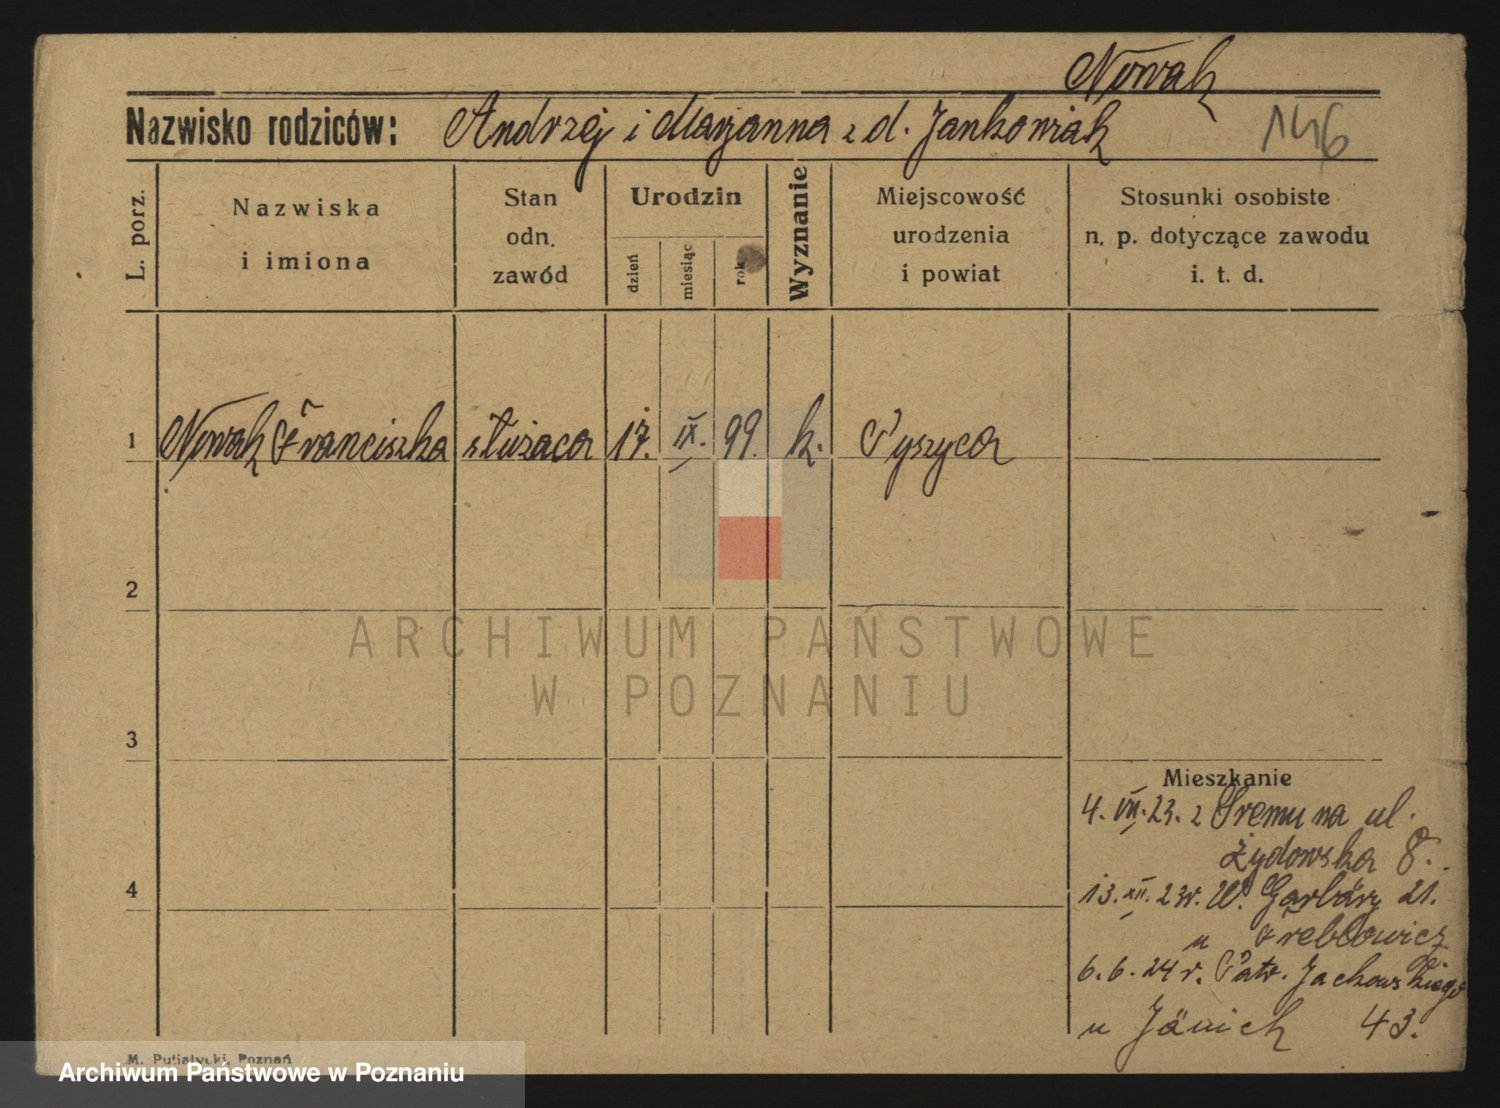 Nowak
Nazwisko rodziców: Andrzej i Maryanna z d. Jankowiak
146
L. porz.
Nazwiska
i imiona
Stan
odn.
zawód
Urodzin
dzień
miesiąc
rok
Wyznanie
Miejscowość
urodzenia
i powiat
Stosunki osobiste
n. p. dotyczące zawodu
i. t. d.
1 Nowak Franciszka służaca 17. IX. 99. k. Pyszyca
2
3
4
Mieszkanie
4. VII. 23. z Śremu na ul.
Żydowska 8.
13. XII. 23r. W. Garbary 21.
u
6. 6. 24 r. Patr. Jackowskiego
u 43.
ARCHIWUM PAŃSTWOWE
W POZNANIU
M. Putiatycki, Poznań
Archiwum Państwowe w Poznaniu